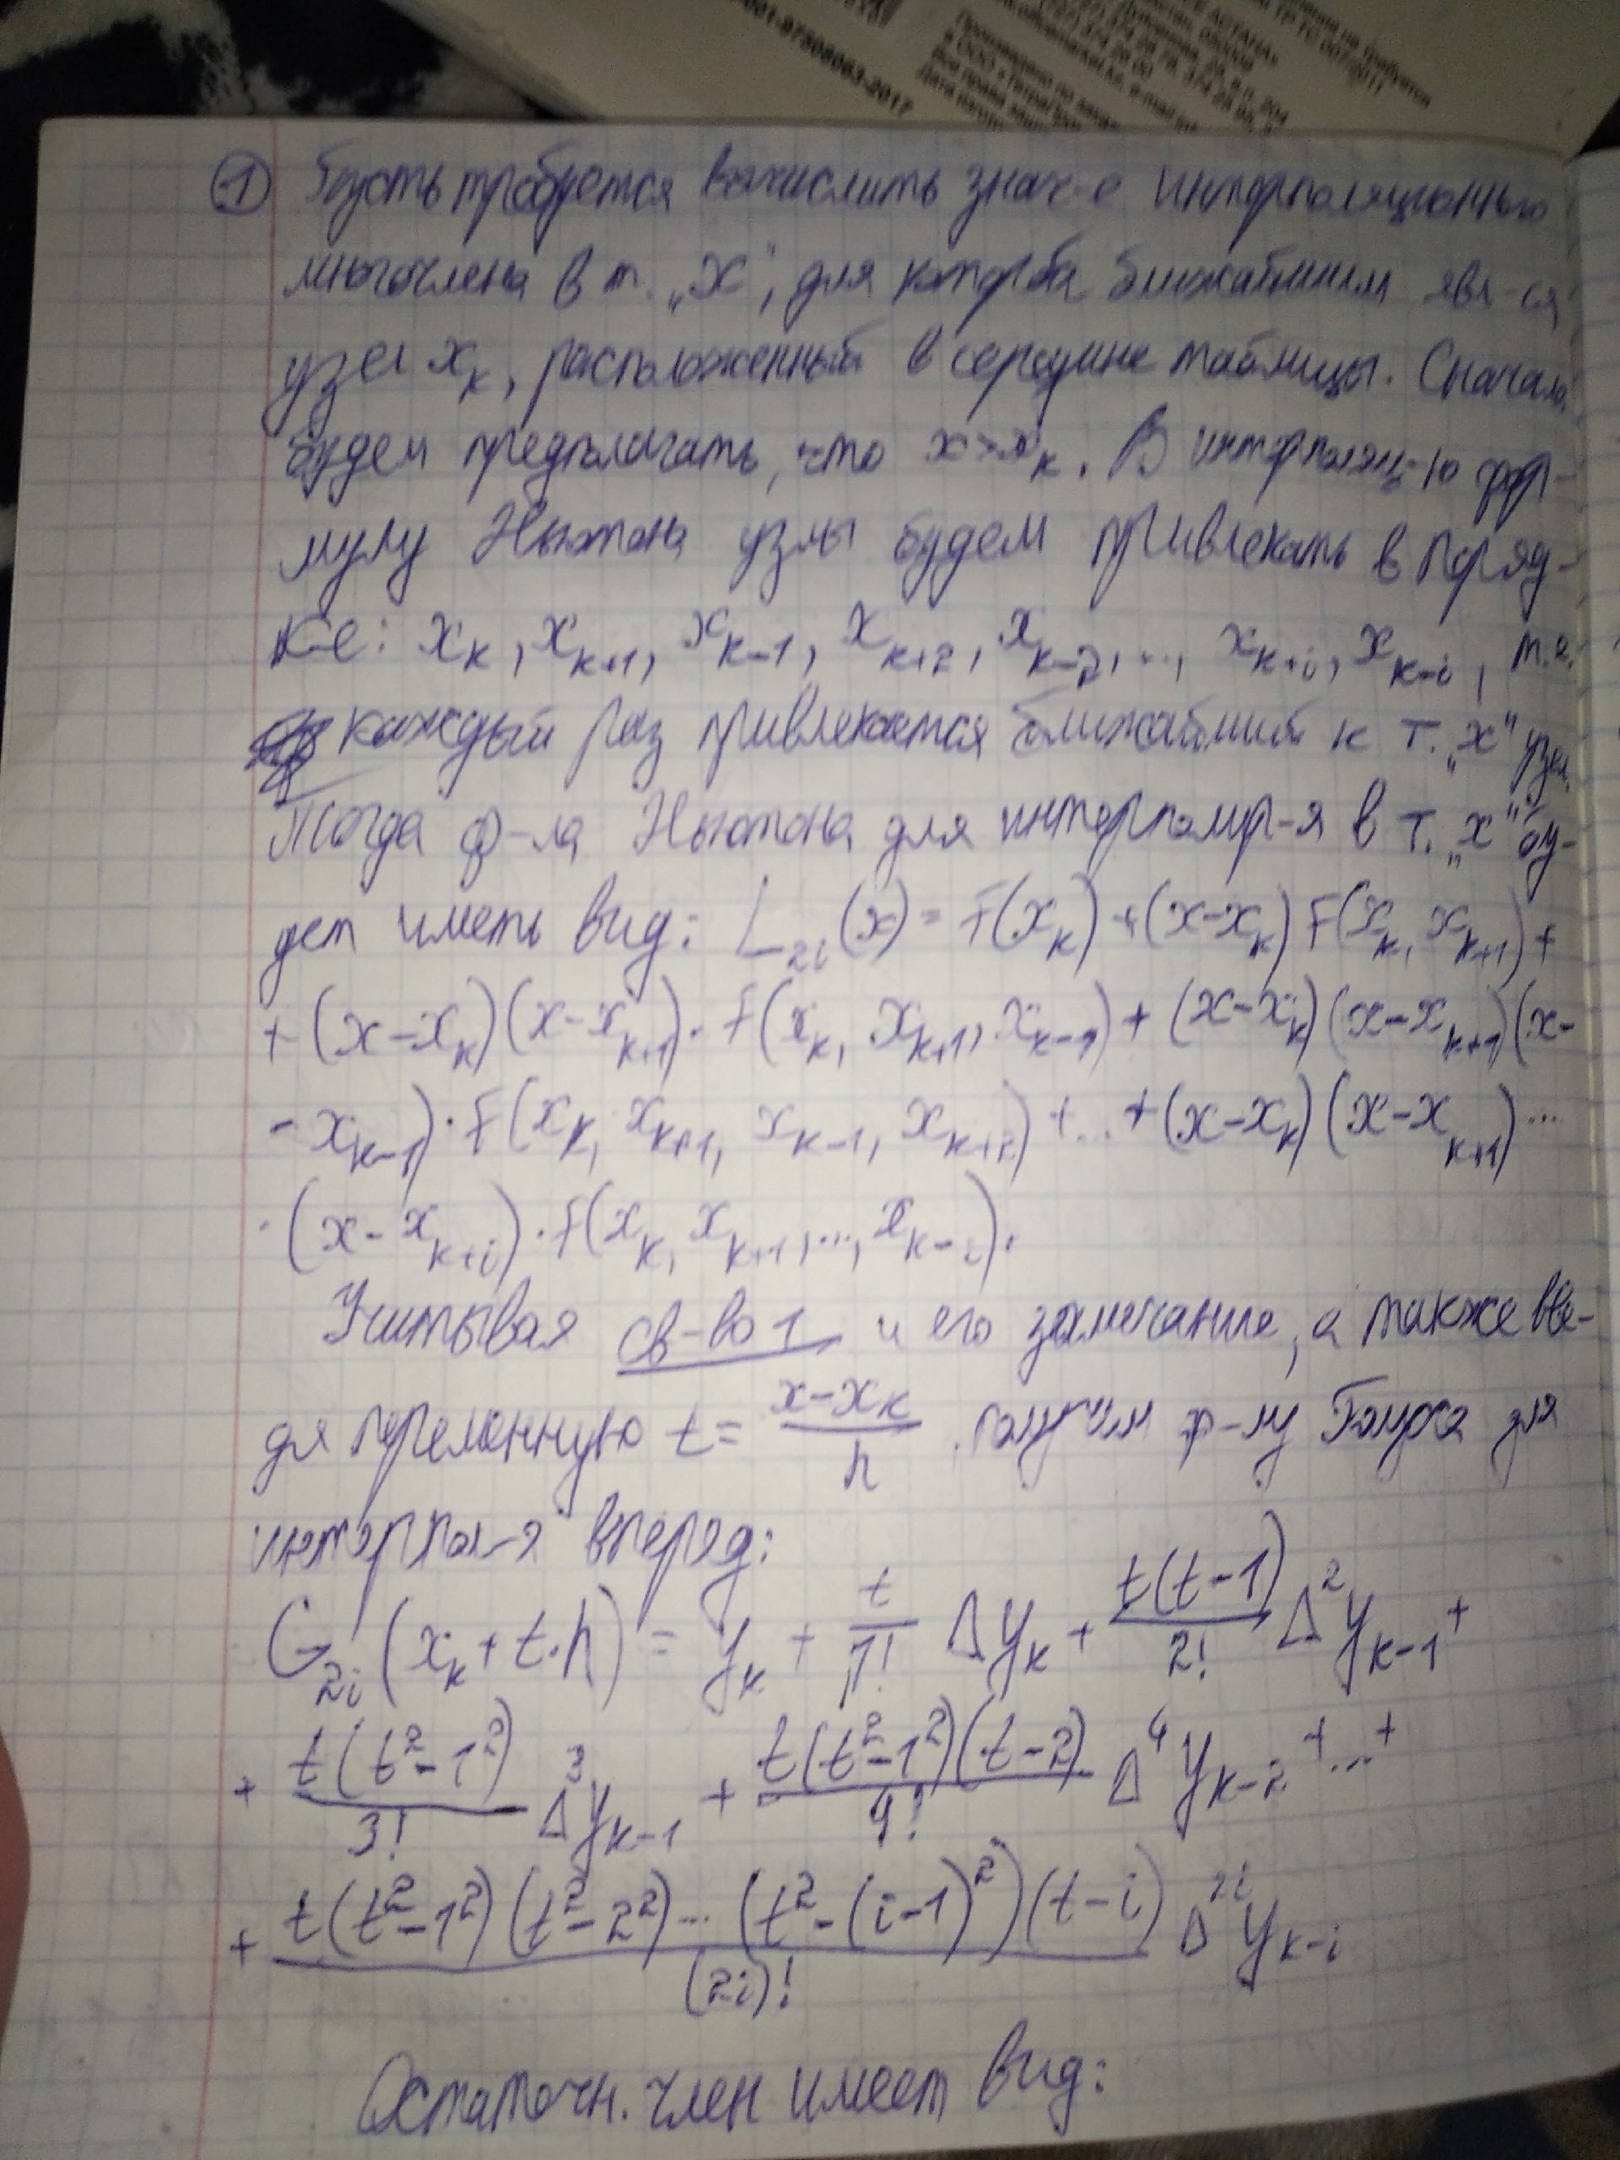 001-97508063-2017
① Пусть требуется вычислить знач-е интерполяционного
многочлена в т. „x", для которой ближайшим явл-ся
узел xₖ, расположенный в середине таблицы. Сначала
будем предполагать, что x>xₖ. В интерполяц-ю фор-
мулу Ньютона узлы будем привлекать в поряд-
ке: xₖ, xₖ₊₁, xₖ₋₁, xₖ₊₂, xₖ₋₂, ..., xₖ₊ᵢ, xₖ₋ᵢ, т.е.
каждый раз привлекается ближайший к т. „x" узел.
Тогда ф-ла Ньютона для интерполир-я в т. „x" бу-
дет иметь вид: L₂ᵢ(x) = f(xₖ) + (x-xₖ) f(xₖ, xₖ₊₁) +
+ (x-xₖ)(x-xₖ₊₁) · f(xₖ, xₖ₊₁, xₖ₋₁) + (x-xₖ)(x-xₖ₊₁)(x-
- xₖ₋₁) · f(xₖ, xₖ₊₁, xₖ₋₁, xₖ₊₂) + ... + (x-xₖ)(x-xₖ₊₁) ...
· (x-xₖ₊ᵢ) · f(xₖ, xₖ₊₁, ..., xₖ₋ᵢ).
Учитывая св-во 1 и его замечание, а также вве-
дя переменную t = (x-xₖ)/h, получим ф-лу Гаусса для
интерпол-я вперёд:
G₂ᵢ(xₖ + t·h) = yₖ + t/1! Δyₖ + t(t-1)/2! Δ²yₖ₋₁ +
+ t(t²-1²)/3! Δ³yₖ₋₁ + t(t²-1²)(t-2)/4! Δ⁴yₖ₋₂ + ... +
+ t(t²-1²)(t²-2²)...(t²-(i-1)²)(t-i)/(2i)! Δ²ⁱyₖ₋ᵢ
Остаточн. член имеет вид: